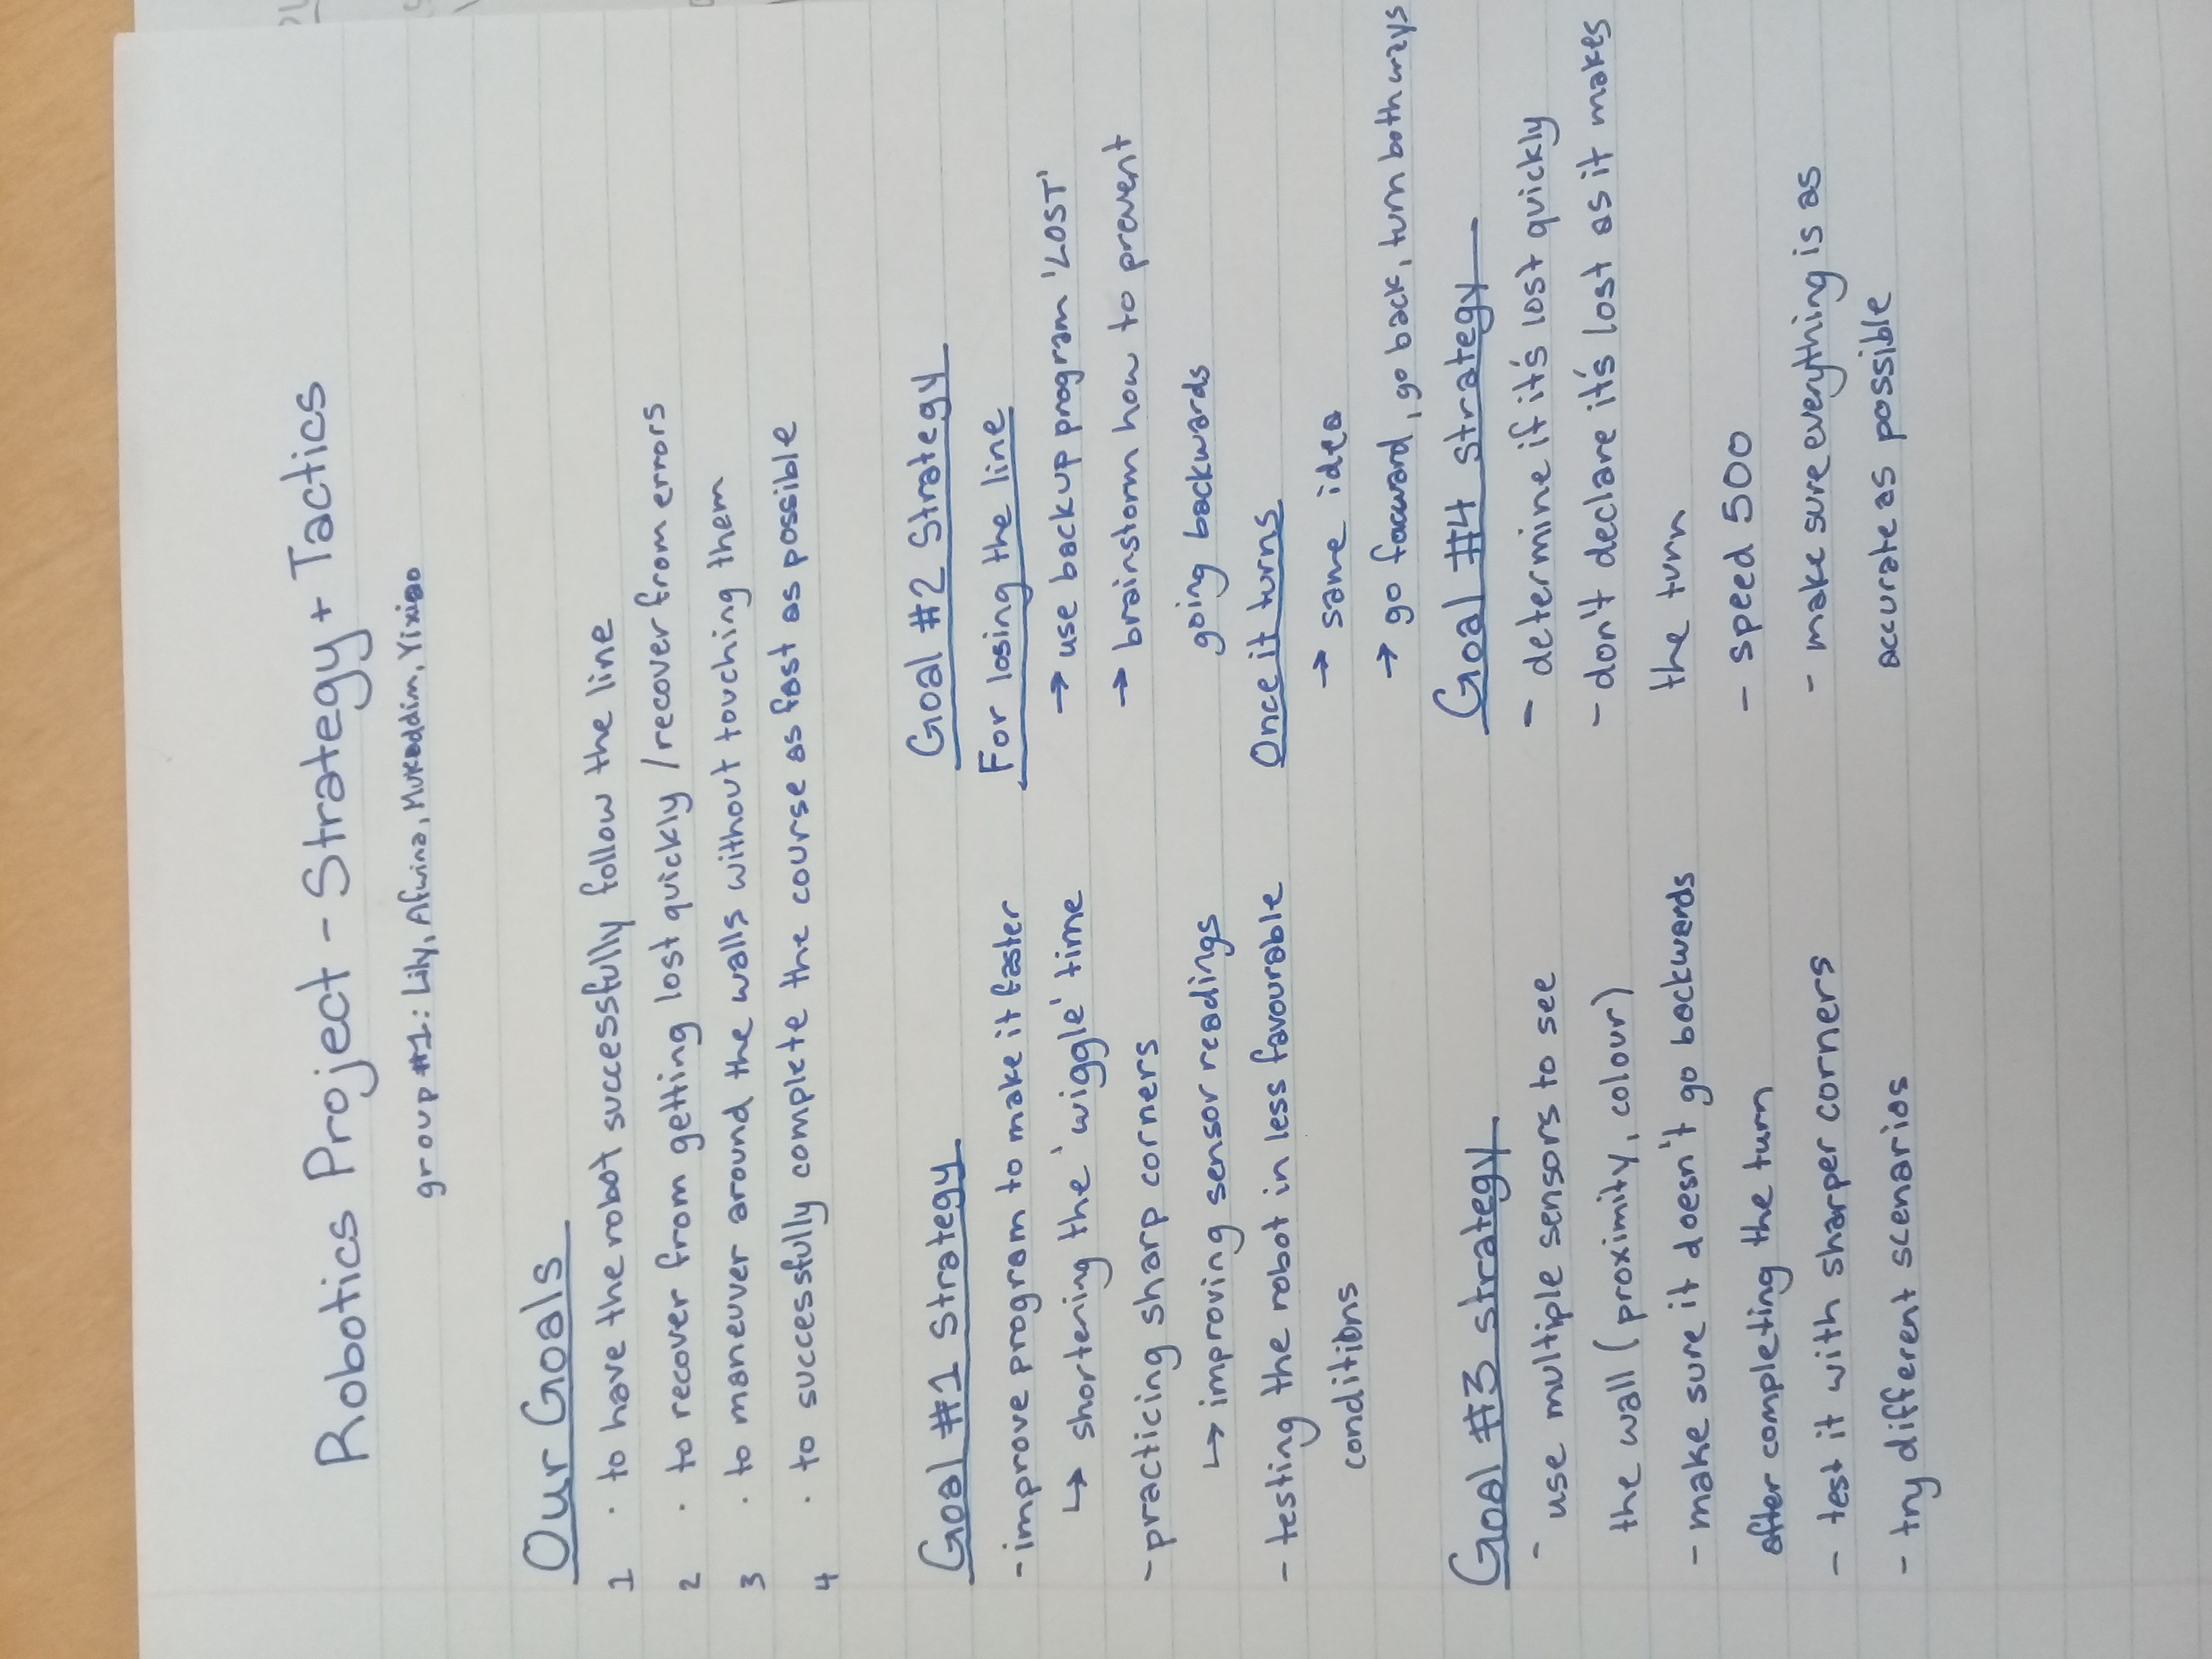 Robotics Project - Strategy + Tactics
group #1: Lily, Afwina, Mukaddim, Yixiao
Our Goals
1 · to have the robot successfully follow the line
2 · to recover from getting lost quickly / recover from errors
3 · to maneuver around the walls without touching them
4 · to successfully complete the course as fast as possible
Goal #1 Strategy
- improve program to make it faster
↳ shortening the 'wiggle' time
- practicing sharp corners
↳ improving sensor readings
- testing the robot in less favourable
conditions
Goal #2 Strategy
For losing the line
→ use backup program 'LOST'
→ brainstorm how to prevent
going backwards
Once it turns
→ same idea
→ go forward, go back, turn both ways
Goal #3 strategy
- use multiple sensors to see
the wall (proximity, colour)
- make sure it doesn't go backwards
after completing the turn
- test it with sharper corners
- try different scenarios
Goal #4 strategy
- determine if it's lost quickly
- don't declare it's lost as it makes
the turn
- speed 500
- make sure everything is as
accurate as possible